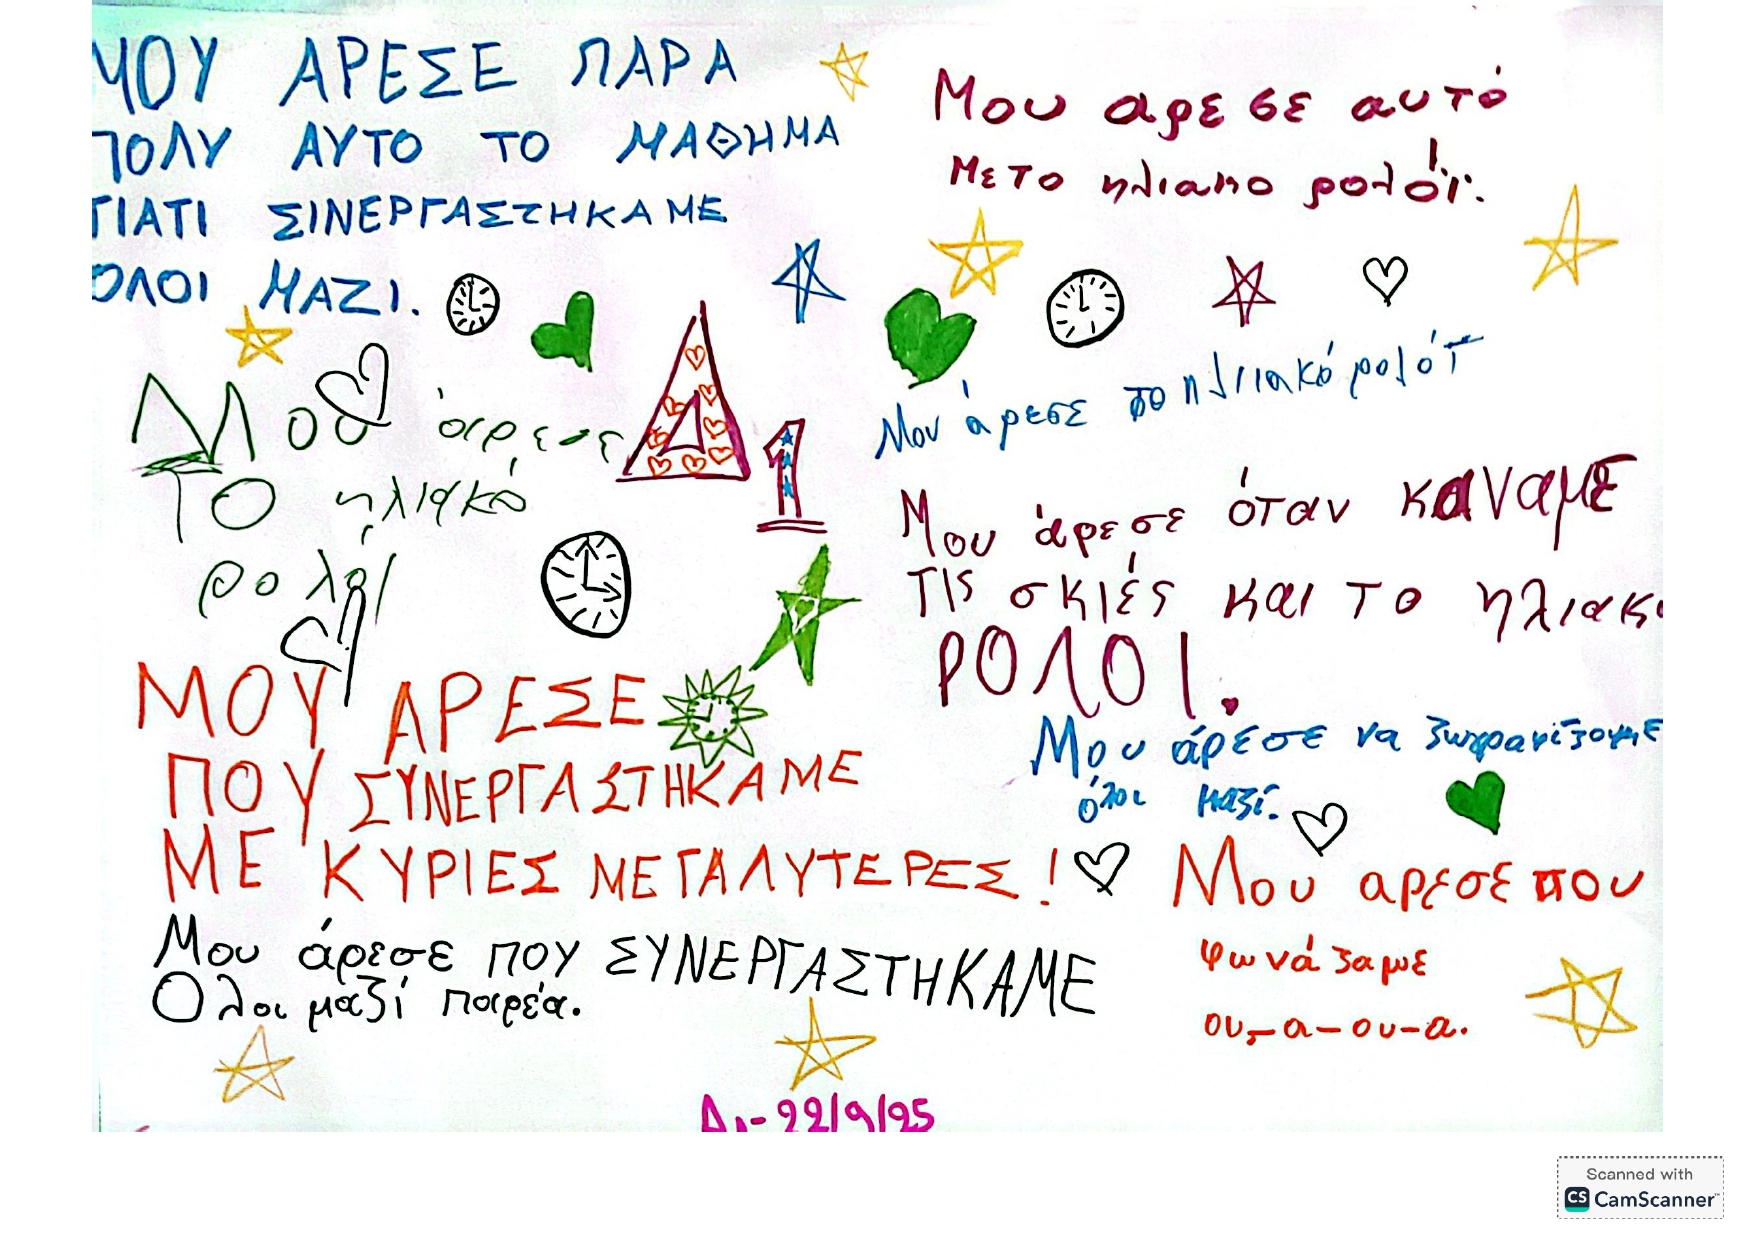 ΜΟΥ ΑΡΕΣΕ ΠΑΡΑ
ΠΟΛΥ ΑΥΤΟ ΤΟ ΜΑΘΗΜΑ
ΓΙΑΤΙ ΣΙΝΕΡΓΑΣΤΗΚΑΜΕ
ΟΛΟΙ ΜΑΖΙ.
Μου αρεσε αυτό
με το ηλιακο ρολόϊ.
Μου άρεσε
το ηλιακό
ρολόι
Δ1
Μου άρεσε το ηλιιακό ρολόι
Μου άρεσε όταν καναμε
τις σκιές και το ηλιακο
ΡΟΛΟΙ.
ΜΟΥ ΑΡΕΣΕ
ΠΟΥ ΣΥΝΕΡΓΑΣΤΗΚΑΜΕ
ΜΕ ΚΥΡΙΕΣ ΜΕΓΑΛΥΤΕΡΕΣ!
Μου άρεσε να ζωγραφίζουμε
όλοι μαζί.
Μου άρεσε που ΣΥΝΕΡΓΑΣΤΗΚΑΜΕ
Ολοι μαζί παρέα.
Μου αρεσε που
φωνάζαμε
ου-α-ου-α.
Δ1-22/9/25
Scanned with
CS CamScanner